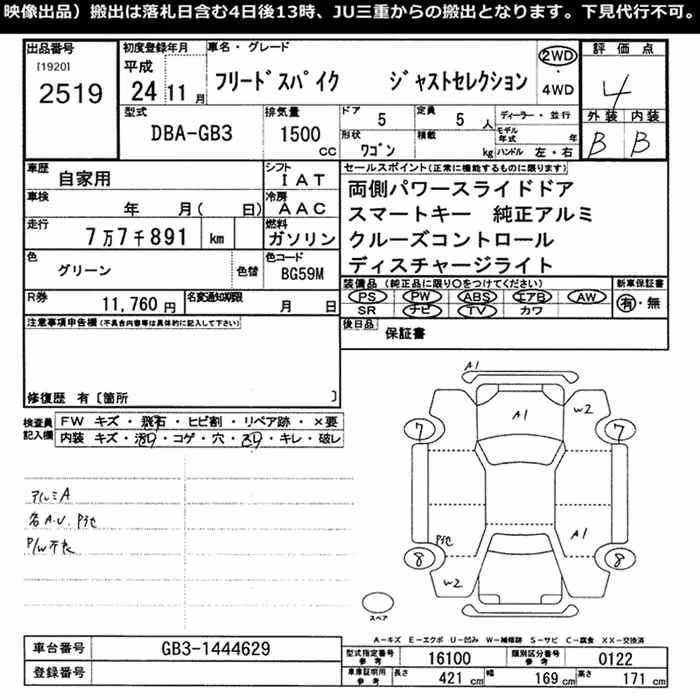 映像出品）搬出は落札日含む4日後13時、JU三重からの搬出となります。下見代行不可。
出品番号
[1920]
2519
初度登録年月
平成
24 11 月
車名・グレード
フリードスパイク ジャストセレクション
2WD
・
4WD
評価点
4
外装 内装
B B
型式
DBA-GB3
排気量
1500 cc
ドア 5
定員 5 人
形状 ワゴン
積載 kg
ディーラー・並行
モデル年式 年
ハンドル 左・右
車歴 自家用
シフト IAT
車検 年 月( 日)
冷房 AAC
走行 7万7千891 km
燃料 ガソリン
色 グリーン
色替
色コード BG59M
R券 11,760 円
名変通知期限 月 日
セールスポイント(正常に機能するものに限ります)
両側パワースライドドア
スマートキー 純正アルミ
クルーズコントロール
ディスチャージライト
装備品 (純正品に限り○をつけてください)
PS PW ABS エアB AW
SR ナビ TV カワ
新車保証書
有・無
後日品 保証書
注意事項申告欄(不具合内容等は具体的に記入して下さい)
修復歴 有〔箇所 〕
検査員記入欄
FW キズ・飛石・ヒビ割・リペア跡・×要
内装 キズ・汚れ・コゲ・穴・スレ・キレ・破レ
アルミA
P/W不良
A1
A1
W2
7
7
A1
8
8
W2
スペア
A-キズ E-エクボ U-凹み W-補修跡 S-サビ C-腐食 XX-交換済
車台番号 GB3-1444629
登録番号
型式指定番号 参考 16100
類別区分番号 参考 0122
車庫証明用 参考 長さ 421 cm 幅 169 cm 高さ 171 cm